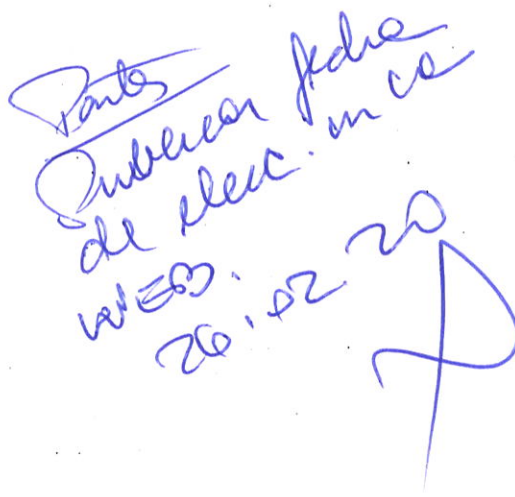 Publicar fecha
de elecc. en la
WEB.
26.02.20